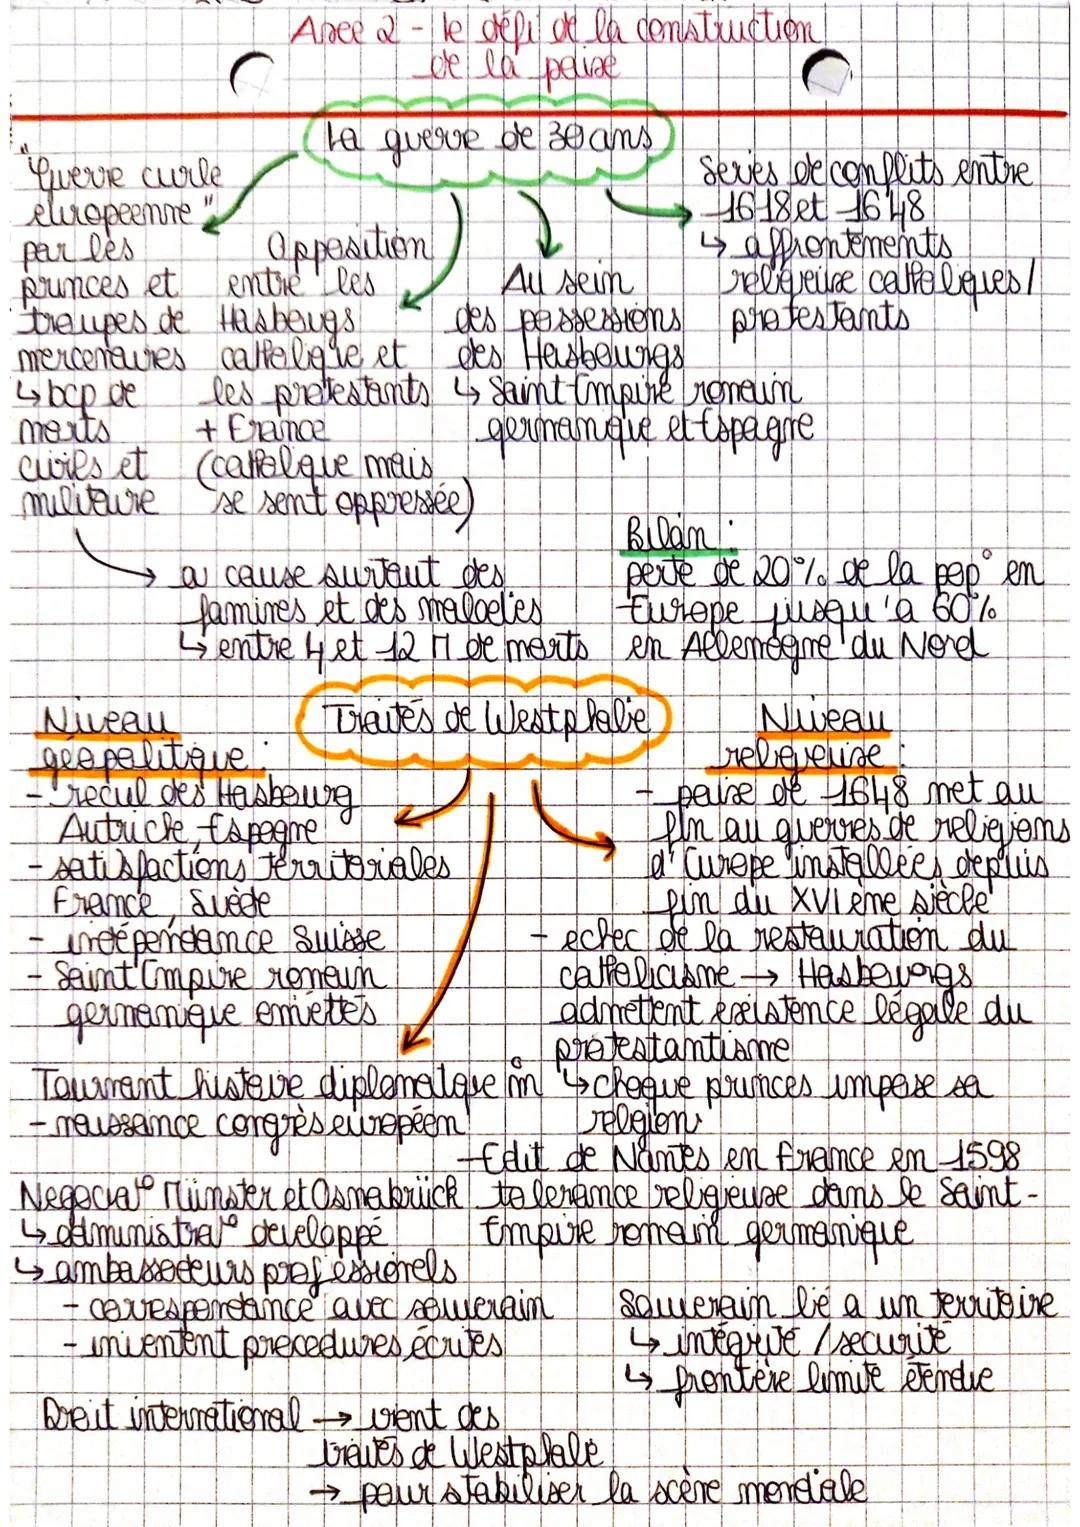 Axe 2 - le défi de la construction
de la paixe
La guerre de 30 ans
"Guerre civile
europeenne"
par les
princes et
troupes de
mercenaires
↳ bcp de
morts
civils et
militaire
Opposition
entre les
Hasbougs
catholique et
les protestants
+ France
(catholique mais
se sent oppressée)
Au sein
des possessions
des Hasbourgs
↳ Saint Empire romain
germanique et Espagne
Series de conflits entre
1618 et 1648
↳ affrontements
religieuxe catholiques/
protestants
→ a cause surtout des
famines et des maladies
↳ entre 4 et 12 M de morts
Bilan :
perte de 20% de la pop° en
Europe jusqu'a 60%
en Allemagne du Nord
Traités de Westphalie
Niveau
géopolitique :
- recul des Hasbourg
Autriche, Espagne
- satisfactions territoriales
France, Suède
- indépendance Suisse
- Saint Empire romain
germanique emiettés
Niveau
religieuxe :
- paixe de 1648 met au
fin au guerres de religions
d'Europe installées depuis
fin du XVIème siècle
- echec de la restauration du
catholicisme → Hasbourgs
admettent existence légale du
protestantisme
↳ chaque princes impose sa
religion
- Edit de Nantes en France en 1598
tolerance religieuse dans le Saint-
Empire romain germanique
Tournant histoire diplomatique in
- naissance congrès européen
Negocia° Münster et Osnabrück
↳ administra° developpé
↳ ambassadeurs professionels
- correspondance avec souverain
- inventent procedures écrites
Souverain lié a un territoire
↳ intégrité / securité
↳ frontère limite étendue
Droit international → vient des
traités de Westphalie
→ pour stabiliser la scène mondiale